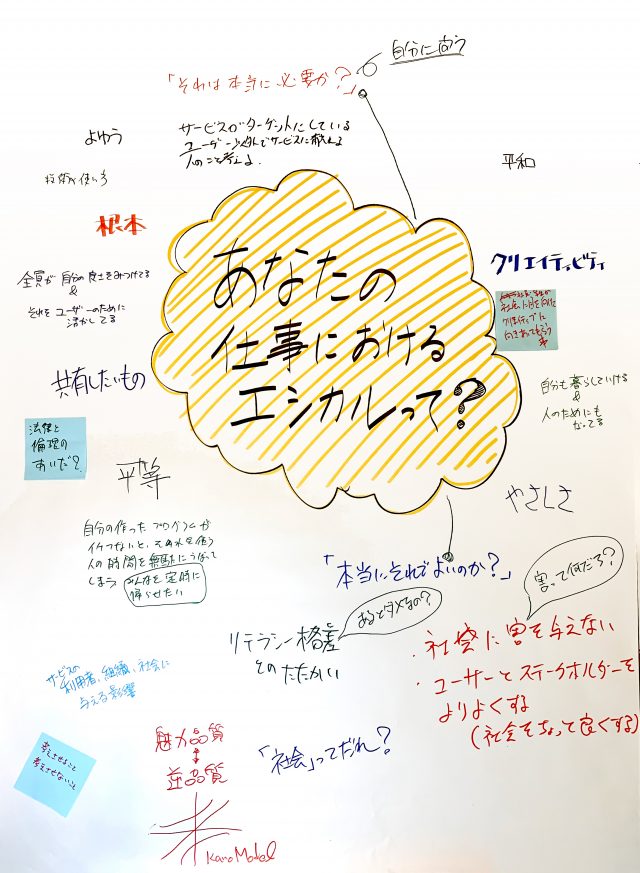 自分に向う
「それは本当に必要か?」
サービスがターゲットにしている
ユーザー以外でサービスに触れる
人のこと考える。
よゆう
技術の使い方
平和
根本
全員が自分の良さをみつけてる
&
それをユーザーのために
活かしてる
クリエイティビティ
社会に目を向け
クリエイティブに
向きあってもらう
あなたの
仕事における
エシカルって?
共有したいもの
法律と
倫理の
あいだ?
自分も暮らしていける
&
人のためにも
なってる
平等
やさしさ
自分の作ったプログラムが
イケてないと、それを使う
人の時間を無駄にうばって
しまう みんなを定時に
帰らせたい
「本当にそれでよいのか?」
害って何だろ?
あるとダメなの?
リテラシー格差
とのたたかい
・社会に害を与えない
・ユーザーとステークホルダーを
よりよくする
(社会をちょって良くする)
サービスの
利用者、組織、社会に
与える影響
考えさせること
考えさせないこと
魅力品質
並品質
Kano Model
「社会」ってだれ?